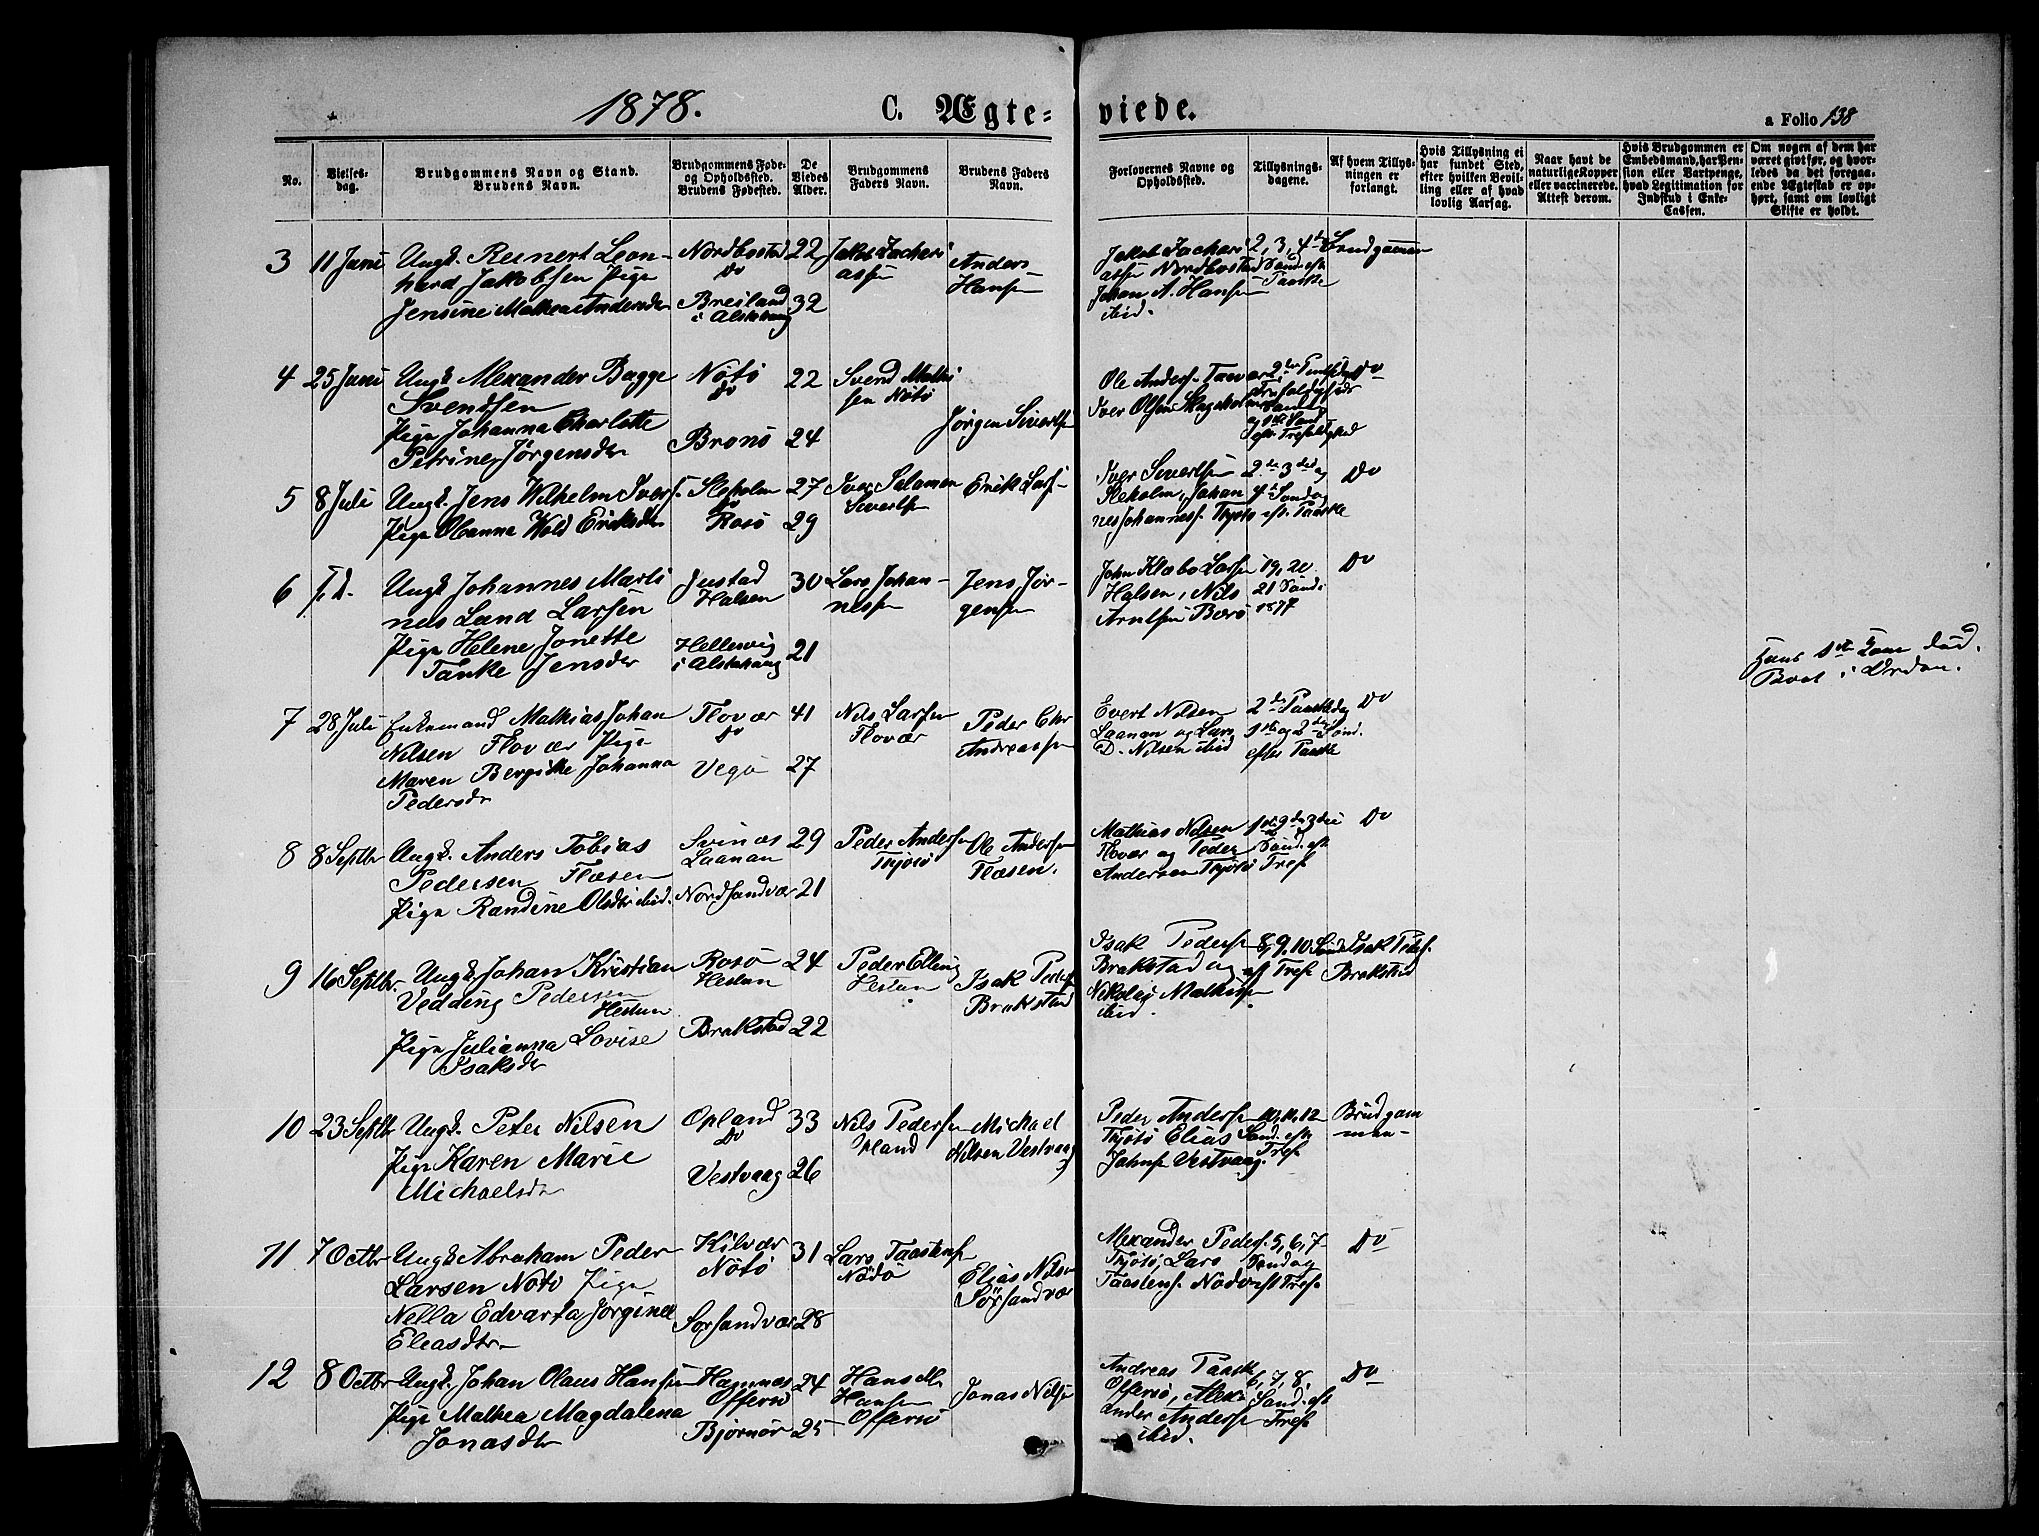 1878. C. Ægteviede. a Folio 138
No.
Vielsesdag.
Brudgommens Navn og Stand.
Brudens Navn.
Brudgommens Føde-
og Opholdssted.
Brudens Fødested.
De
Viedes
Alder.
Brudgommens
Faders Navn.
Brudens Faders
Navn.
Forlovernes Navne og
Opholdssted.
Tillysnings-
dagene.
Af hvem Tillys-
ningen er
forlangt.
Hvis Tillysning ei
har fundet Sted,
efter hvilken Bevil-
ling eller af hvad
lovlig Aarsag.
Naar havt de
naturlige Kopper
eller vaccinerede.
Attest derom.
Hvis Brudgommen er
Embedsmand, har Pen-
sion eller Vartpenge,
hvad Legitimation for
Indskud i Enke-
Cassen.
Om nogen af dem har
været givt før, og hvor-
ledes da det foregaa-
ende Ægteskab er op-
hørt, samt om lovligt
Skifte er holdt.
3 11 Juni Ungk. Reinert Leon-
hard Jakobsen Pige
Jensine Mathea Andersdr
Nordbostad 22
Do
Breiland 32
i Alstahaug
Jakob Zachari
assen
Anders
Hansen
Jakob Zachari
assen Nordbostad
Johan A. Hansen
ibid.
2, 3, 4de
Sønd. eft.
Paaske
4 25 Juni Ungk. Alexander Bagge
Svendsen
Pige Johanna Charlotte
Petrine Jørgensdr
Nötö 22
Do
Bronö 24
Svend Mathi
sen Nötö
Jörgen Sivertsen
Ole Anders.
Iver Olsen
Do
5 8 Juli Ungk. Jens Wilhelm Ivers.
Pige Olianna Wold Eriksdr
Sleholm 27
Do
Rosö 29
Iver Salamon
Sivertsen
Erik Lars.
Iver Sivertsen
Sleholm, Johan
nes Johannes. Tjøtö
2de 3die og
4de Søndag
eft. Paaske
Do
6 s. D. Ungk Johannes Marti
nus Lund Larsen
Pige Helene Jonette
Tanke Jensdr
Justad 30
Halsen
Hellesvig 21
i Alstahaug
Lars Johan-
nessen
Jens Jör-
gensen
John Klæbo Larsen
Halsen, Nils
Arntsen Borö
19, 20
21 Sønd.
1877
Do
Hans 1ste Kone död.
7 28 Juli Enkemand Mathias Johan
Nilsen Flovær Pige
Maren Bergitte Johanna
Pedersdr
Flovær 41
Do
Vegö 27
Nils Larsen
Flovær
Peder Chr
Andreassen
Evert Nilsen
Laanan og Lars
D. Nilsen ibid
2den Paaskedag
1ste og 2den Sønd.
efter Paaske
Do
8 8 Septbr Ungk. Anders Tobias
Pedersen Flæsen
Pige Randine Olsdtr ibid.
Svinæs 29
Laanan
Nordsandvær 21
Peder Andersen
Tjötö
Ole Andersen
Flæsen.
Mathias Nilsen
Flovær og Peder
Andersen Tjötö
1ste 2de 3die
Sønd. eft
Tref
Do
9 16 Septbr. Ungk. Johan Kristian
Vedding Pedersen
Hestun
Pige Julianna Lovise
Isaksdr
Rosö 24
Hestun
Brakstad 22
Peder Elling
Hestun
Isak Peders
Brakstad
Isak Peders
Brakstad og
Nikolai Mathisen
ibid.
8, 9, 10 Sönd
eft Tref
Isak Peders.
Brakstad
10 23 Septbr Ungk. Peter Nilsen
Pige Karen Marie
Michaelsdr
Opland 33
Do
Vestvaag 26
Nils Pedersen
Opland
Michael
Nilsen Vestvaag
Peder Andersen
Tjötö Elias
Johnsen Vestvaag.
10, 11, 12
Sønd. eft
Tref
Brudgom
men-
11 7 Octbr Ungk. Abraham Peder
Larsen Nötö Pige
Nella Edvarta Jörgine
Eliasdtr
Kilvær 31
Nötö
Sörsandvær 28
Lars Taastensen
Nödö
Elias Nilsen
Sörsandvær
Alexander Peders.
Tjötö, Lars
Taastens. Nödö
5, 6, 7
Søndag
eft Tref
Do
12 8 Octbr Ungk. Johan Olaus Hansen
Pige Mathea Magdalena
Jonasdtr
Hamnæs 24
Offersö
Bjørnör 25
Hans
Hansen
Offersö
Jonas Nilsen
Andreas
Offersö, Alex
ander Andersen
ibid.
6, 7, 8,
Sønd. eft
Tref
Do